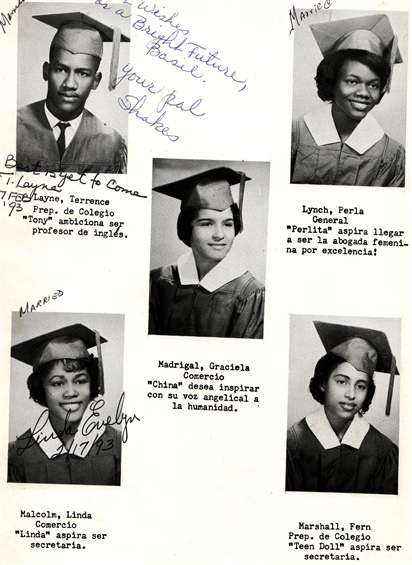 Wishes
as a Bright Future,
Basil.
Your pal
Shakes
Married
Best is yet to Come
T. Layne
7 FEB
93
Layne, Terrence
Prep. de Colegio
"Tony" ambiciona ser
profesor de inglés.
Lynch, Perla
General
"Perlita" aspira llegar
a ser la abogada femeni-
na por excelencia!
MARRIED
Madrigal, Graciela
Comercio
"China" desea inspirar
con su voz angelical a
la humanidad.
Linda Evelyn
2/17/93
Malcolm, Linda
Comercio
"Linda" aspira ser
secretaria.
Marshall, Fern
Prep. de Colegio
"Teen Doll" aspira ser
secretaria.